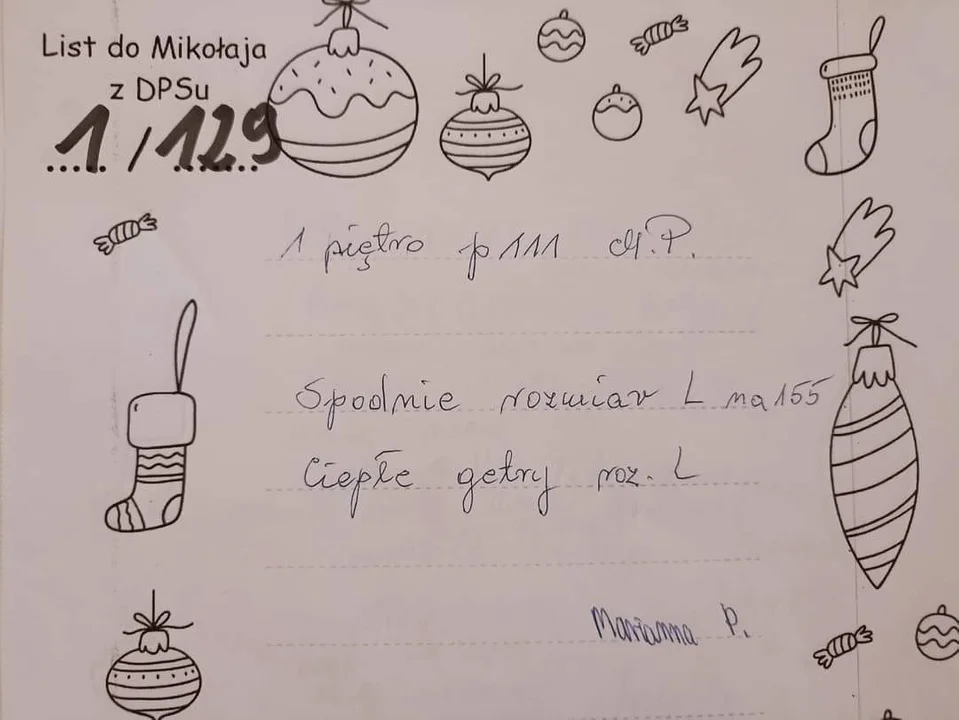 List do Mikołaja
z DPSu
1 / 129
1 piętro p 111 M.P.
Spodnie rozmiar L na 155
Ciepłe getry roz. L
Marianna P.